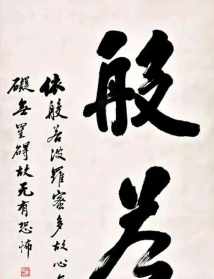 般若
依般若波羅蜜多故心無
礙無罣礙故无有恐怖